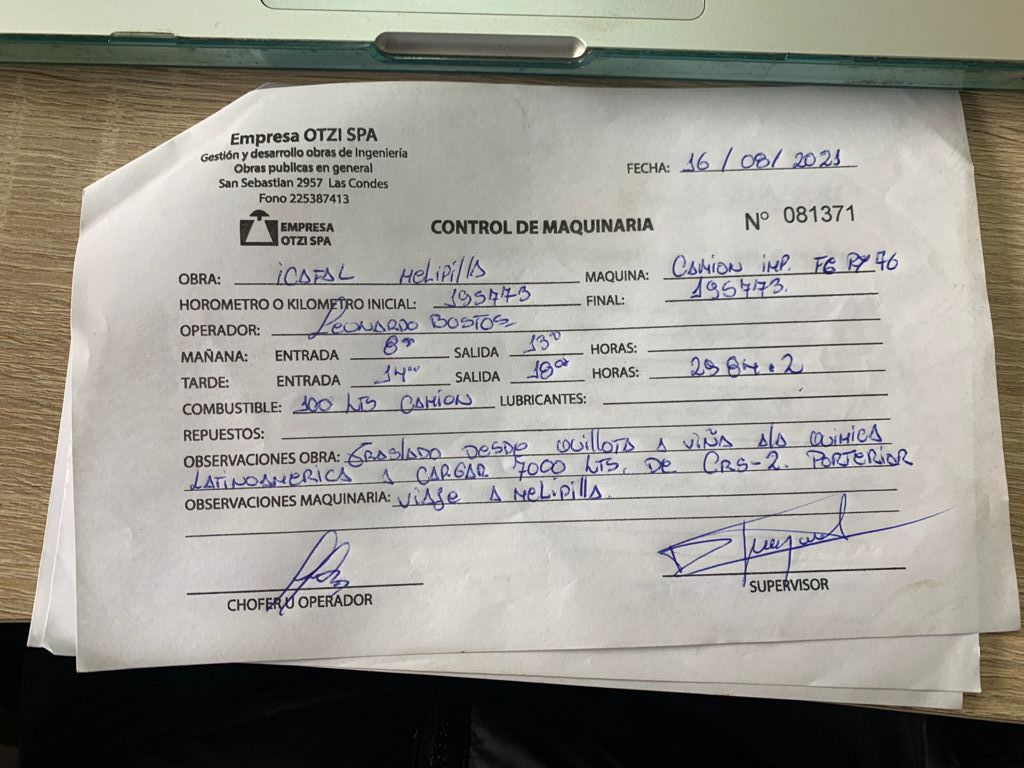 Empresa OTZI SPA
Gestión y desarrollo obras de Ingeniería
Obras publicas en general
San Sebastian 2957 Las Condes
Fono 225387413
FECHA: 16 / 08 / 2021
EMPRESA
OTZI SPA
CONTROL DE MAQUINARIA
Nº 081371
OBRA: iCAFAL MeLipillA MAQUINA: CAMION IMP. FG RY 76
HOROMETRO O KILOMETRO INICIAL: 195773 FINAL: 195773.
OPERADOR: LEONARDO BUSTOS
MAÑANA: ENTRADA 8°° SALIDA 13°° HORAS:
TARDE: ENTRADA 14°° SALIDA 18°° HORAS: 2984.2
COMBUSTIBLE: 100 LTS CAMION LUBRICANTES:
REPUESTOS:
OBSERVACIONES OBRA: TRASLADO DESDE QUILLOTA A VIÑA A QUIMICA
LATINOAMERICA A CARGAR 7000 LTS. DE CRS-2. PORTERIOR
OBSERVACIONES MAQUINARIA: ViAJe A MeLipillA.
CHOFER U OPERADOR
SUPERVISOR